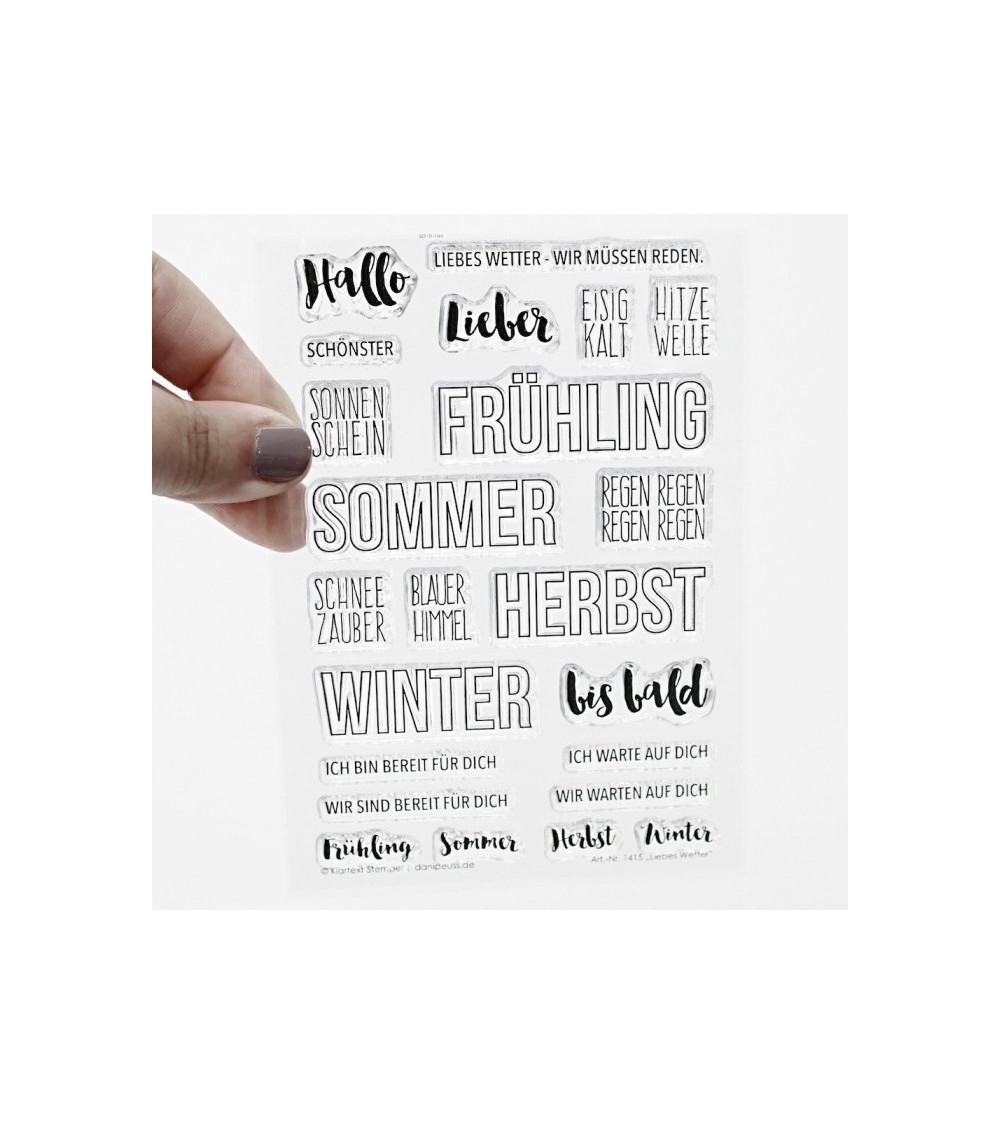 Hallo
LIEBES WETTER - WIR MÜSSEN REDEN.
Lieber
EISIG
KALT
HITZE
WELLE
SCHÖNSTER
SONNEN
SCHEIN
FRÜHLING
SOMMER
REGEN REGEN
REGEN REGEN
SCHNEE
ZAUBER
BLAUER
HIMMEL
HERBST
WINTER
bis bald
ICH BIN BEREIT FÜR DICH
ICH WARTE AUF DICH
WIR SIND BEREIT FÜR DICH
WIR WARTEN AUF DICH
Frühling
Sommer
Herbst
Winter
© Klartext Stempel | danipeuss.de
Art.-Nr. 1415 „Liebes Wetter"